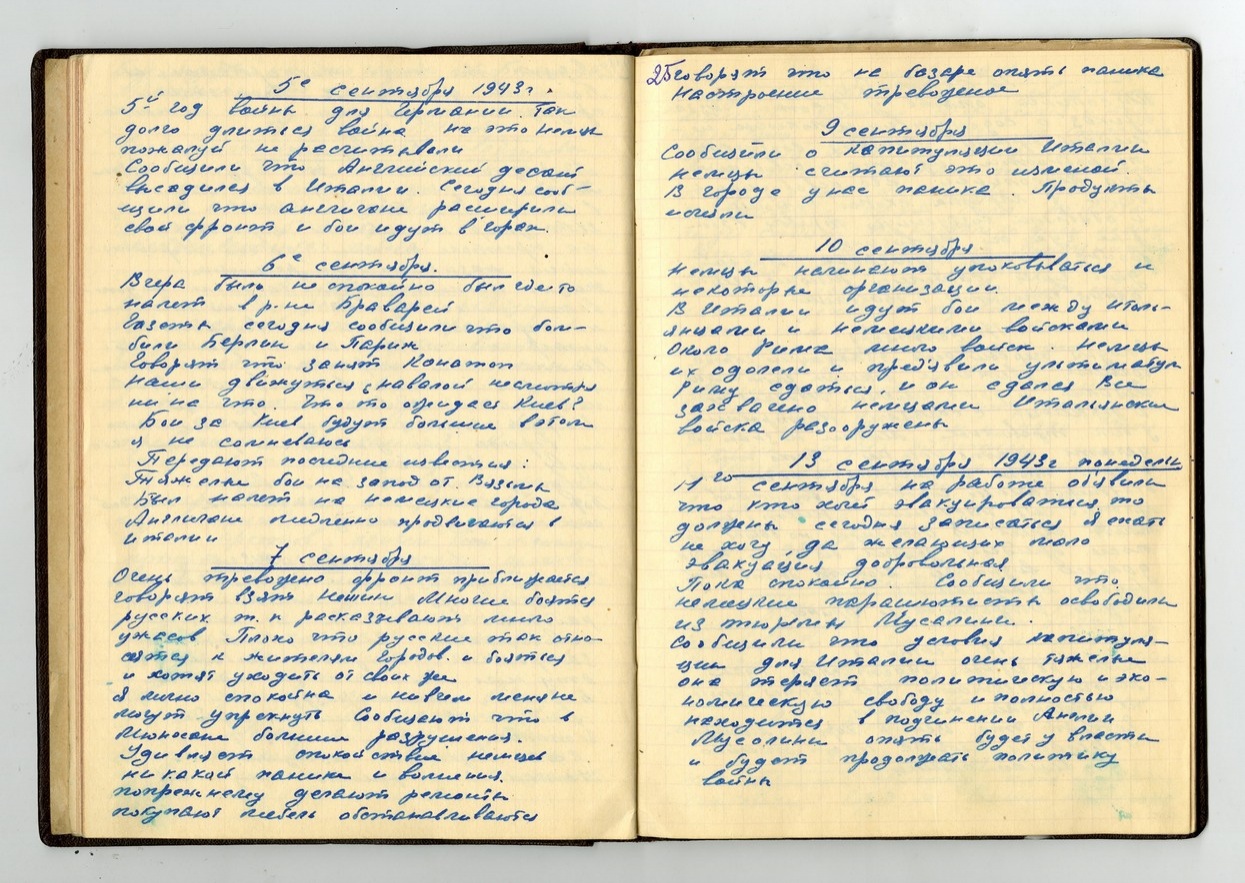 5е сентября 1943г.
5й год войны для Германии. Так
долго длиться война на это немцы
пожалуй не расчитывали
Сообщили что Английский десант
высадился в Италии. Сегодня сооб-
щили что англичане расширили
свой фронт и бои идут в горах.
6е сентября.
Вчера было не спокойно был где то
налет в р-не Браварей
Газеты сегодня сообщили что бом-
били Берлин и Париж
Говорят что занят Конотоп
наши движуться навалой несмотря
ни на что. Что то ожидает Киев?
Бои за Киев будут большие в этом
я не сомневаюсь
Передают последние известия:
Тяжелые бои на запад от Вязьмы
Был налет на немецкие города
Англичане медленно продвигаются в
италии
7 сентября
Очень тревожно фронт приближается
говорят взят Нежин Многие боятся
русских т. к расказывают много
ужасов Плохо что русские так отно-
сятся к жителям городов. и бояться
и хотят уходить от своих же
я лично спокойна и ничем меня не
могут упрекнуть Сообщают что в
Мюнхене большие разрушения.
Удивляет спокойствие немцев
никакой паники и волнения.
попрежнему делают ремонты
покупают мебель обстанавливаются
25 говорят что на базаре опять паника
Настроение тревожное
9 сентября
Сообщили о капитуляции Италии
немцы считают это изменой.
В городе у нас паника. Продукты
исчезли
10 сентября
Немцы начинают упаковываться и
некоторые организации.
В Италии идут бои между италь-
янцами и немецкими войсками
Около Рима много войск. Немцы
их одолели и предявили ультиматум
Риму сдаться, и он сдался Все
захвачено немцами Итальянские
войска разоружены
13 сентября 1943г понедельн
11го сентября на работе обявили
что кто хочет эвакуироваться то
должны сегодня записаться Я ехать
не хочу, да желающих мало
эвакуация добровольная
Пока спокойно. Сообщили что
немецкие парашютисты освободили
из тюрьмы Мусалини.
Сообщили что условия капитуля-
ции для Италии очень тяжелые
она теряет политическую и эко-
номическую свободу и полностью
находится в подчинении Англии
Мусолини опять будет у власти
и будет продолжать политику
войны